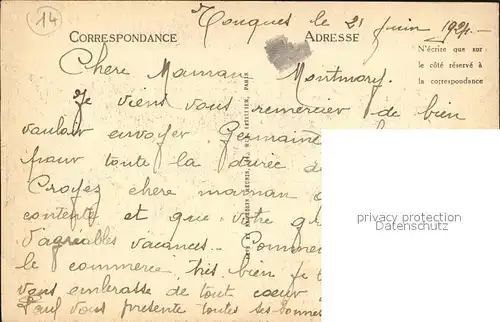 14
Touques le 21 Juin 1924.-
CORRESPONDANCE
ADRESSE
N'écrire que sur
le côté réservé à
la correspondance
Chere Maman Montmory.
Je viens vous remercier de bien
vouloir envoyer Germaine
pour toute la durée d
Croyez chere maman
contente et que votre
d'agréables vacances..
le commerce, très bien, je
vous embrasse de tout coeur
Paul vous presente toutes ses bonnes
privacy protection
Datenschutz